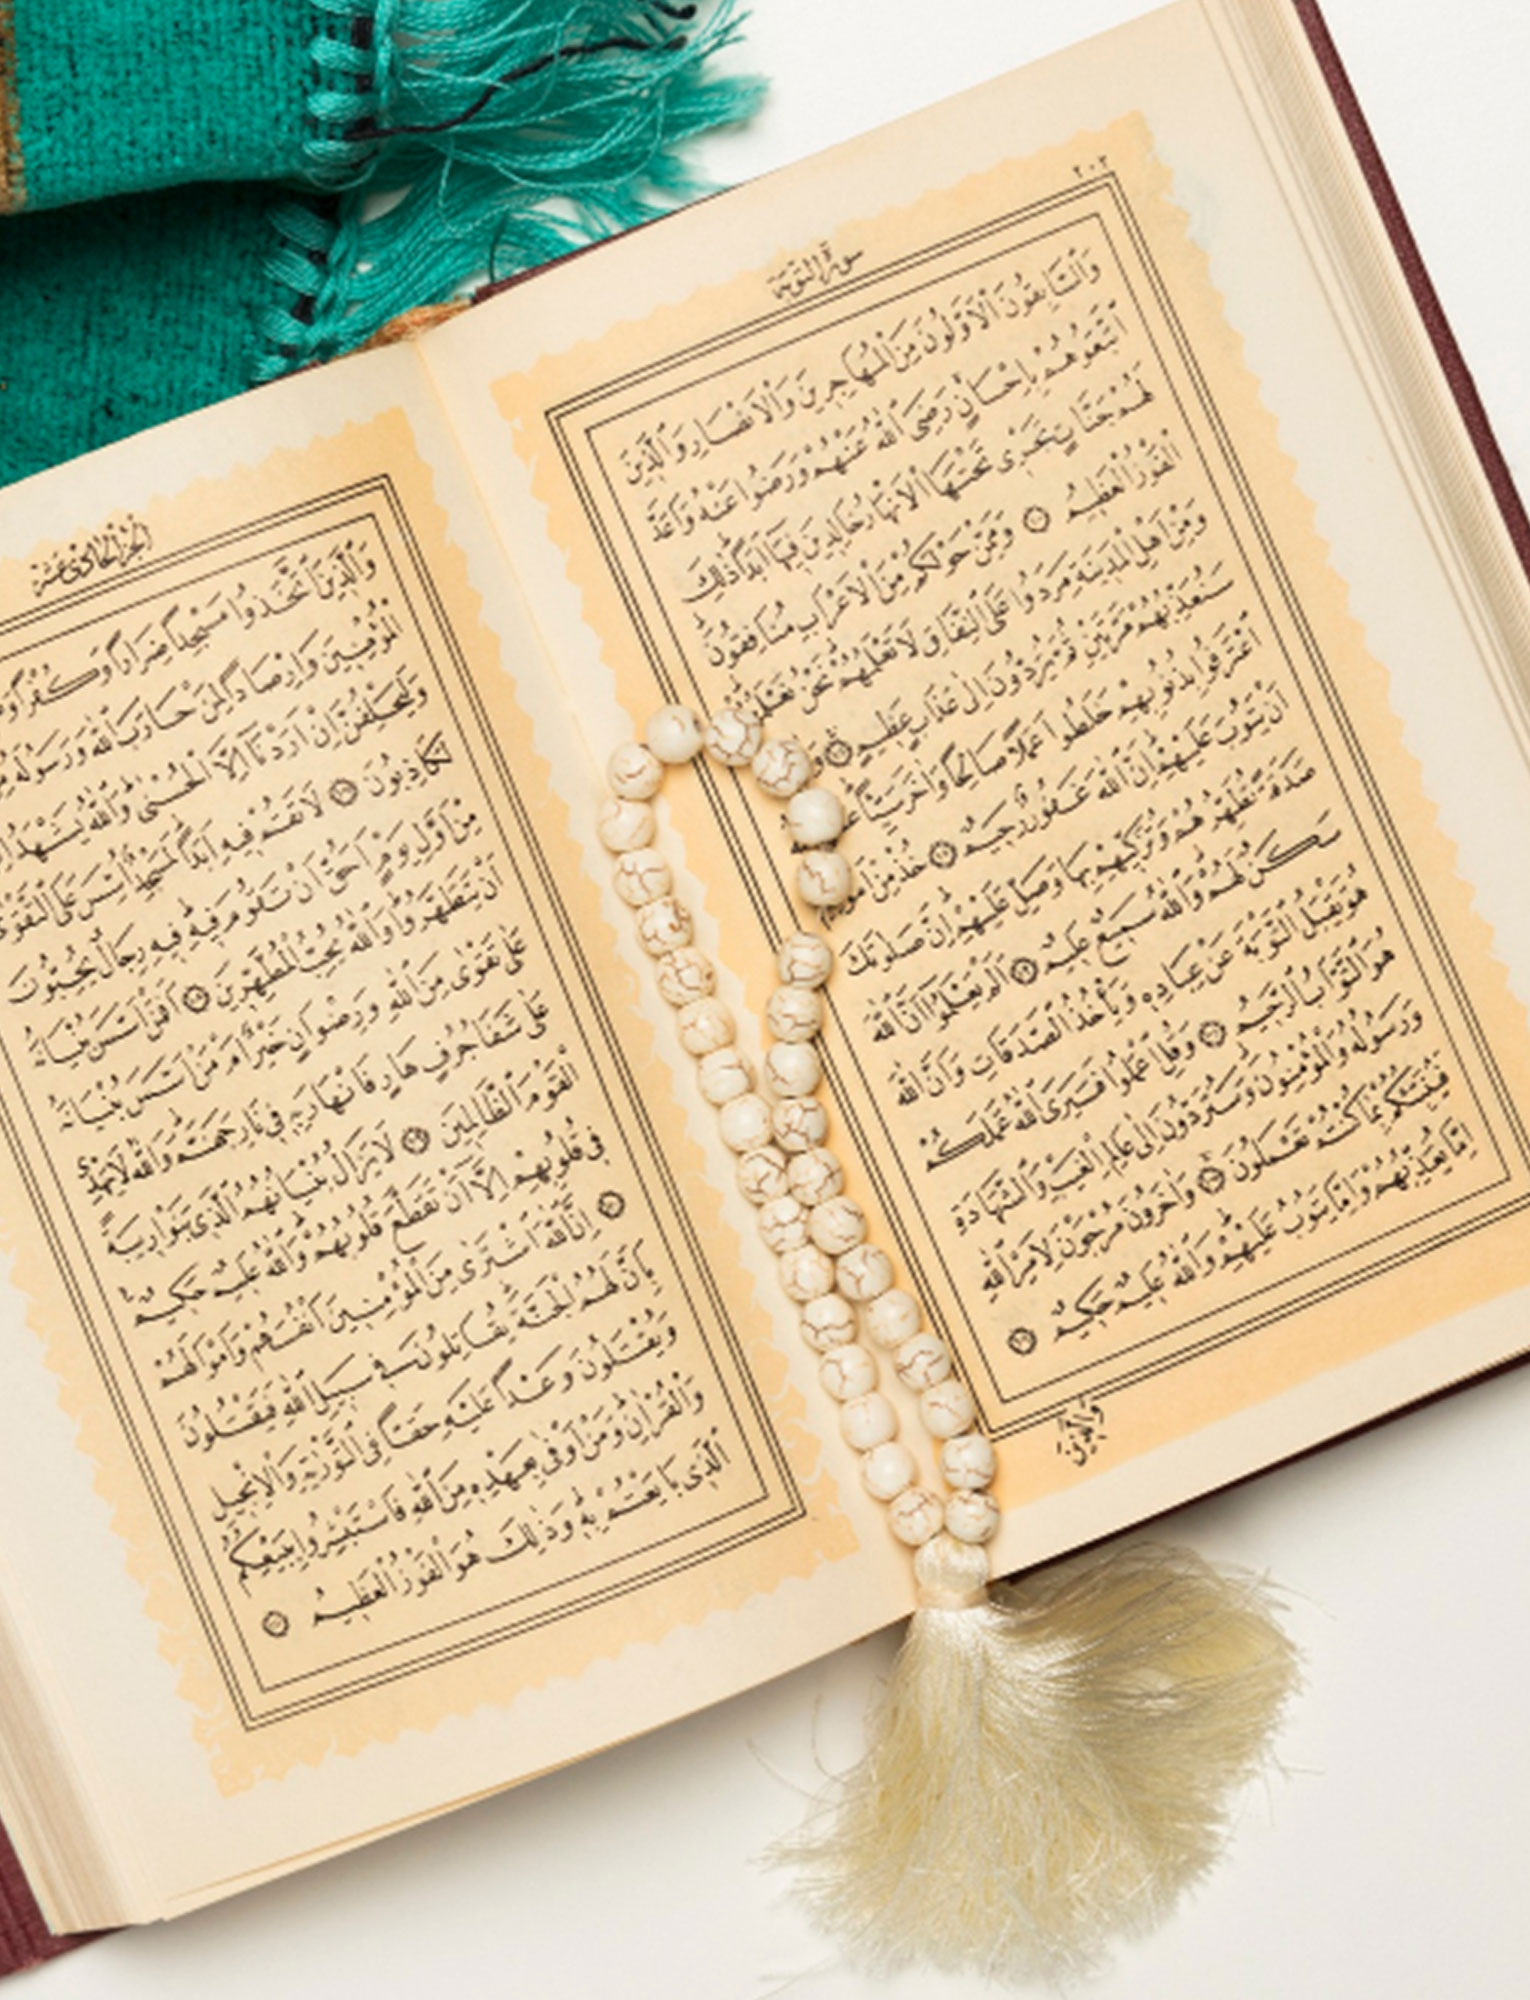 ٢٠٢
سورة التوبة
وَالسَّابِقُونَ الْاَوَّلُونَ مِنَ الْمُهَاجِرِينَ وَالْاَنْصَارِ وَالَّذِينَ
اتَّبَعُوهُمْ بِاِحْسَانٍ رَضِىَ اللّٰهُ عَنْهُمْ وَرَضُوا عَنْهُ وَاَعَدَّ
لَهُمْ جَنَّاتٍ تَجْرِى تَحْتَهَا الْاَنْهَارُ خَالِدِينَ فِيهَا اَبَدًا ذٰلِكَ
الْفَوْزُ الْعَظِيمُ وَمِمَّنْ حَوْلَكُمْ مِنَ الْاَعْرَابِ مُنَافِقُونَ
وَمِنْ اَهْلِ الْمَدِينَةِ مَرَدُوا عَلَى النِّفَاقِ لَا تَعْلَمُهُمْ نَحْنُ
سَنُعَذِّبُهُمْ مَرَّتَيْنِ ثُمَّ يُرَدُّونَ اِلٰى عَذَابٍ عَظِيمٍ
اعْتَرَفُوا بِذُنُوبِهِمْ خَلَطُوا عَمَلًا صَالِحًا وَاٰخَرَ سَيِّئًا
اَنْ يَتُوبَ عَلَيْهِمْ اِنَّ اللّٰهَ غَفُورٌ رَحِيمٌ خُذْ مِنْ
صَدَقَةً تُطَهِّرُهُمْ وَتُزَكِّيهِمْ بِهَا وَصَلِّ عَلَيْهِمْ اِنَّ صَلٰوتَكَ
سَكَنٌ لَهُمْ وَاللّٰهُ سَمِيعٌ عَلِيمٌ اَلَمْ يَعْلَمُوا اَنَّ اللّٰهَ
هُوَ يَقْبَلُ التَّوْبَةَ عَنْ عِبَادِهِ وَيَأْخُذُ الصَّدَقَاتِ وَاَنَّ اللّٰهَ
هُوَ التَّوَّابُ الرَّحِيمُ وَقُلِ اعْمَلُوا فَسَيَرَى اللّٰهُ عَمَلَكُمْ
وَرَسُولُهُ وَالْمُؤْمِنُونَ وَسَتُرَدُّونَ اِلٰى عَالِمِ الْغَيْبِ وَالشَّهَادَةِ
فَيُنَبِّئُكُمْ بِمَا كُنْتُمْ تَعْمَلُونَ وَاٰخَرُونَ مُرْجَوْنَ لِاَمْرِ اللّٰهِ
اِمَّا يُعَذِّبُهُمْ وَاِمَّا يَتُوبُ عَلَيْهِمْ وَاللّٰهُ عَلِيمٌ حَكِيمٌ
وَالَّذِينَ
الجزء الحادى عشر
وَالَّذِينَ اتَّخَذُوا مَسْجِدًا ضِرَارًا وَكُفْرًا
الْمُؤْمِنِينَ وَاِرْصَادًا لِمَنْ حَارَبَ اللّٰهَ وَرَسُولَهُ
وَلَيَحْلِفُنَّ اِنْ اَرَدْنَا اِلَّا الْحُسْنٰى وَاللّٰهُ يَشْهَدُ
لَكَاذِبُونَ لَا تَقُمْ فِيهِ اَبَدًا لَمَسْجِدٌ اُسِّسَ عَلَى التَّقْوٰى
مِنْ اَوَّلِ يَوْمٍ اَحَقُّ اَنْ تَقُومَ فِيهِ فِيهِ رِجَالٌ يُحِبُّونَ
اَنْ يَتَطَهَّرُوا وَاللّٰهُ يُحِبُّ الْمُطَّهِّرِينَ اَفَمَنْ اَسَّسَ بُنْيَانَهُ
عَلٰى تَقْوٰى مِنَ اللّٰهِ وَرِضْوَانٍ خَيْرٌ اَمْ مَنْ اَسَّسَ بُنْيَانَهُ
عَلٰى شَفَا جُرُفٍ هَارٍ فَانْهَارَ بِهِ فِى نَارِ جَهَنَّمَ وَاللّٰهُ لَا يَهْدِى
الْقَوْمَ الظَّالِمِينَ لَا يَزَالُ بُنْيَانُهُمُ الَّذِى بَنَوْا رِيبَةً
فِى قُلُوبِهِمْ اِلَّا اَنْ تَقَطَّعَ قُلُوبُهُمْ وَاللّٰهُ عَلِيمٌ حَكِيمٌ
اِنَّ اللّٰهَ اشْتَرٰى مِنَ الْمُؤْمِنِينَ اَنْفُسَهُمْ وَاَمْوَالَهُمْ
بِاَنَّ لَهُمُ الْجَنَّةَ يُقَاتِلُونَ فِى سَبِيلِ اللّٰهِ فَيَقْتُلُونَ
وَيُقْتَلُونَ وَعْدًا عَلَيْهِ حَقًّا فِى التَّوْرٰيةِ وَالْاِنْجِيلِ
وَالْقُرْاٰنِ وَمَنْ اَوْفٰى بِعَهْدِهِ مِنَ اللّٰهِ فَاسْتَبْشِرُوا بِبَيْعِكُمُ
الَّذِى بَايَعْتُمْ بِهِ وَذٰلِكَ هُوَ الْفَوْزُ الْعَظِيمُ